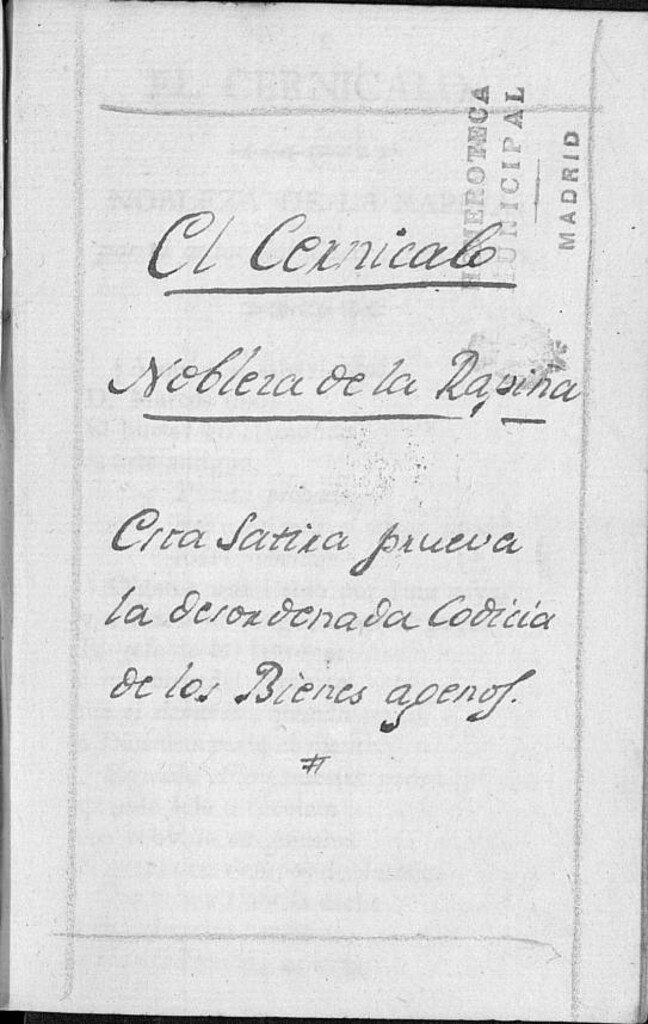 HEMEROTECA
MUNICIPAL
MADRID
El Cernicalo
Nobleza de la Rapiña
Esta Satira prueva
la desordenada Codicia
de los Bienes agenos.
#